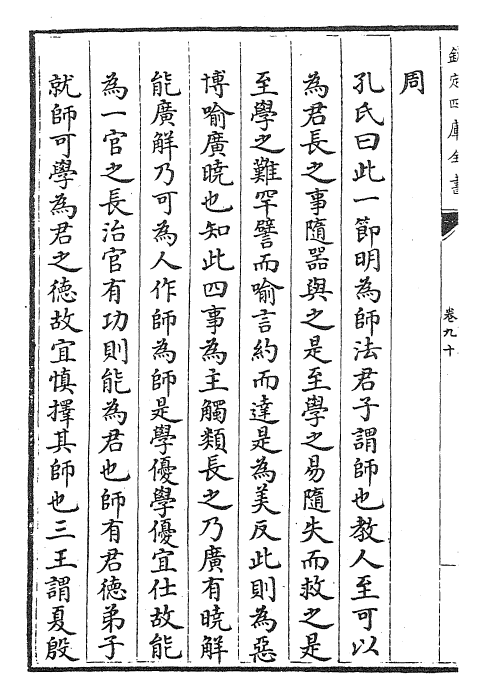 欽定四庫全書
卷九十
周
孔氏曰此一節明為師法君子謂師也教人至可以
為君長之事隨器與之是至學之易隨失而救之是
至學之難罕譬而喻言約而達是為美反此則為惡
博喻廣曉也知此四事為主觸類長之乃廣有曉解
能廣解乃可為人作師為師是學優學優宜仕故能
為一官之長治官有功則能為君也師有君徳弟子
就師可學為君之徳故宜慎擇其師也三王謂夏殷